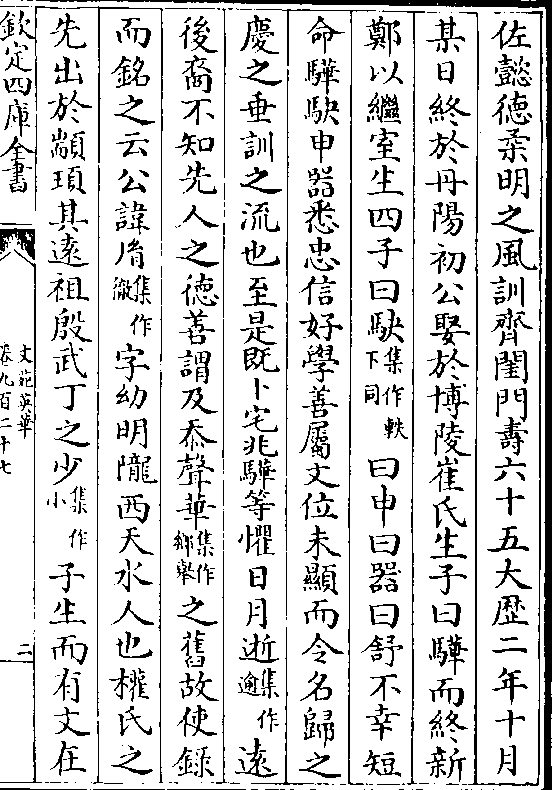 佐懿德柔明之風訓齊閨門壽六十五大歴二年十月
某日終於丹陽初公娶於博陵崔氏生子曰驊而終新
鄭以繼室生四子曰駃集作軼下同曰申曰器曰舒不幸短
命驊駃申器悉忠信好學善屬文位未顯而令名歸之
慶之垂訓之流也至是既卜宅兆驊等懼日月逝集作逾遠
後裔不知先人之德善謂及忝聲華集作鄉舉之舊故使錄
而銘之云公諱㣧集作徽字幼明隴西天水人也權氏之
先出於顓頊其遠祖殷武丁之少集作小子生而有文在
欽定四庫全書
文苑英華
卷九百二十七
二